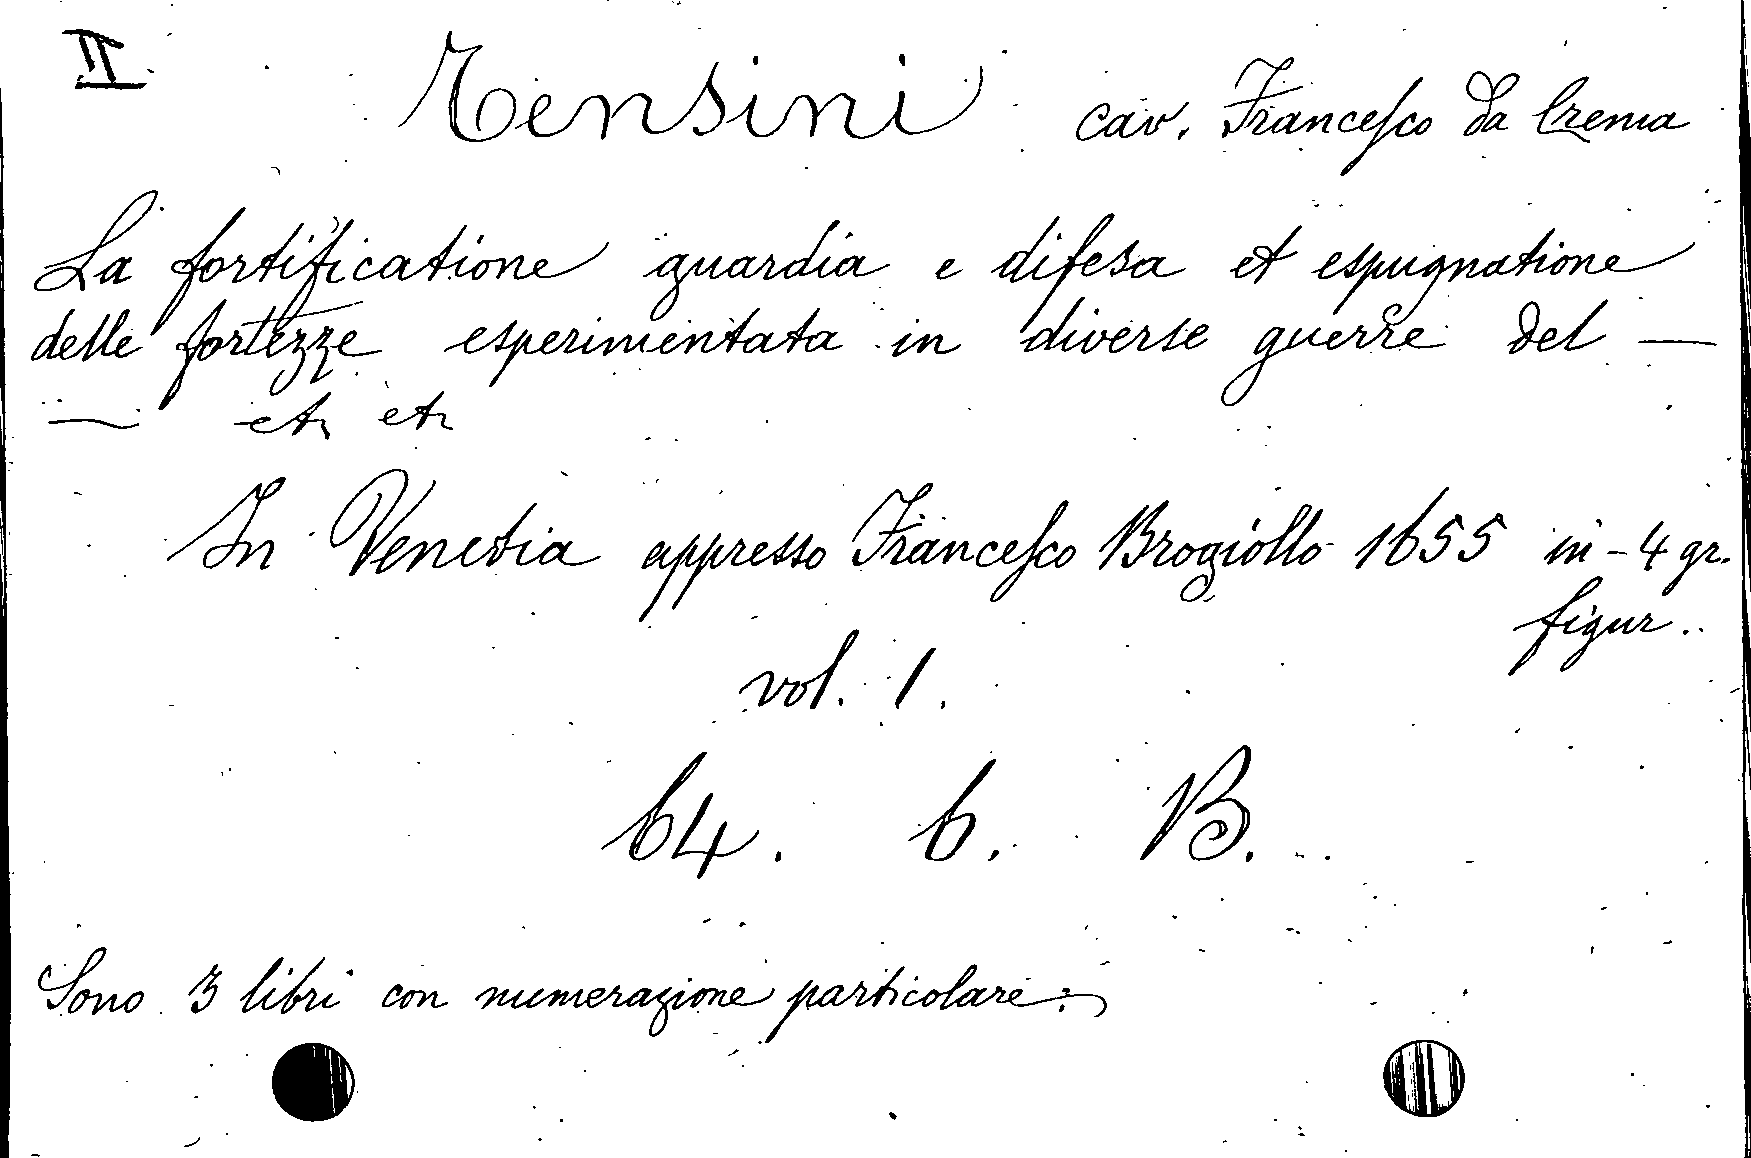 II Tensini cav. Francesco da Crema
La fortificatione guardia e difesa et espugnatione
delle fortezze esperimentata in diverse guerre del —
— etc etc
In Venetia appresso Francesco Brogiollo 1655 in-4 gr.
figur.
vol. 1.
64. 6. B.
Sono 3 libri con numerazione particolare.